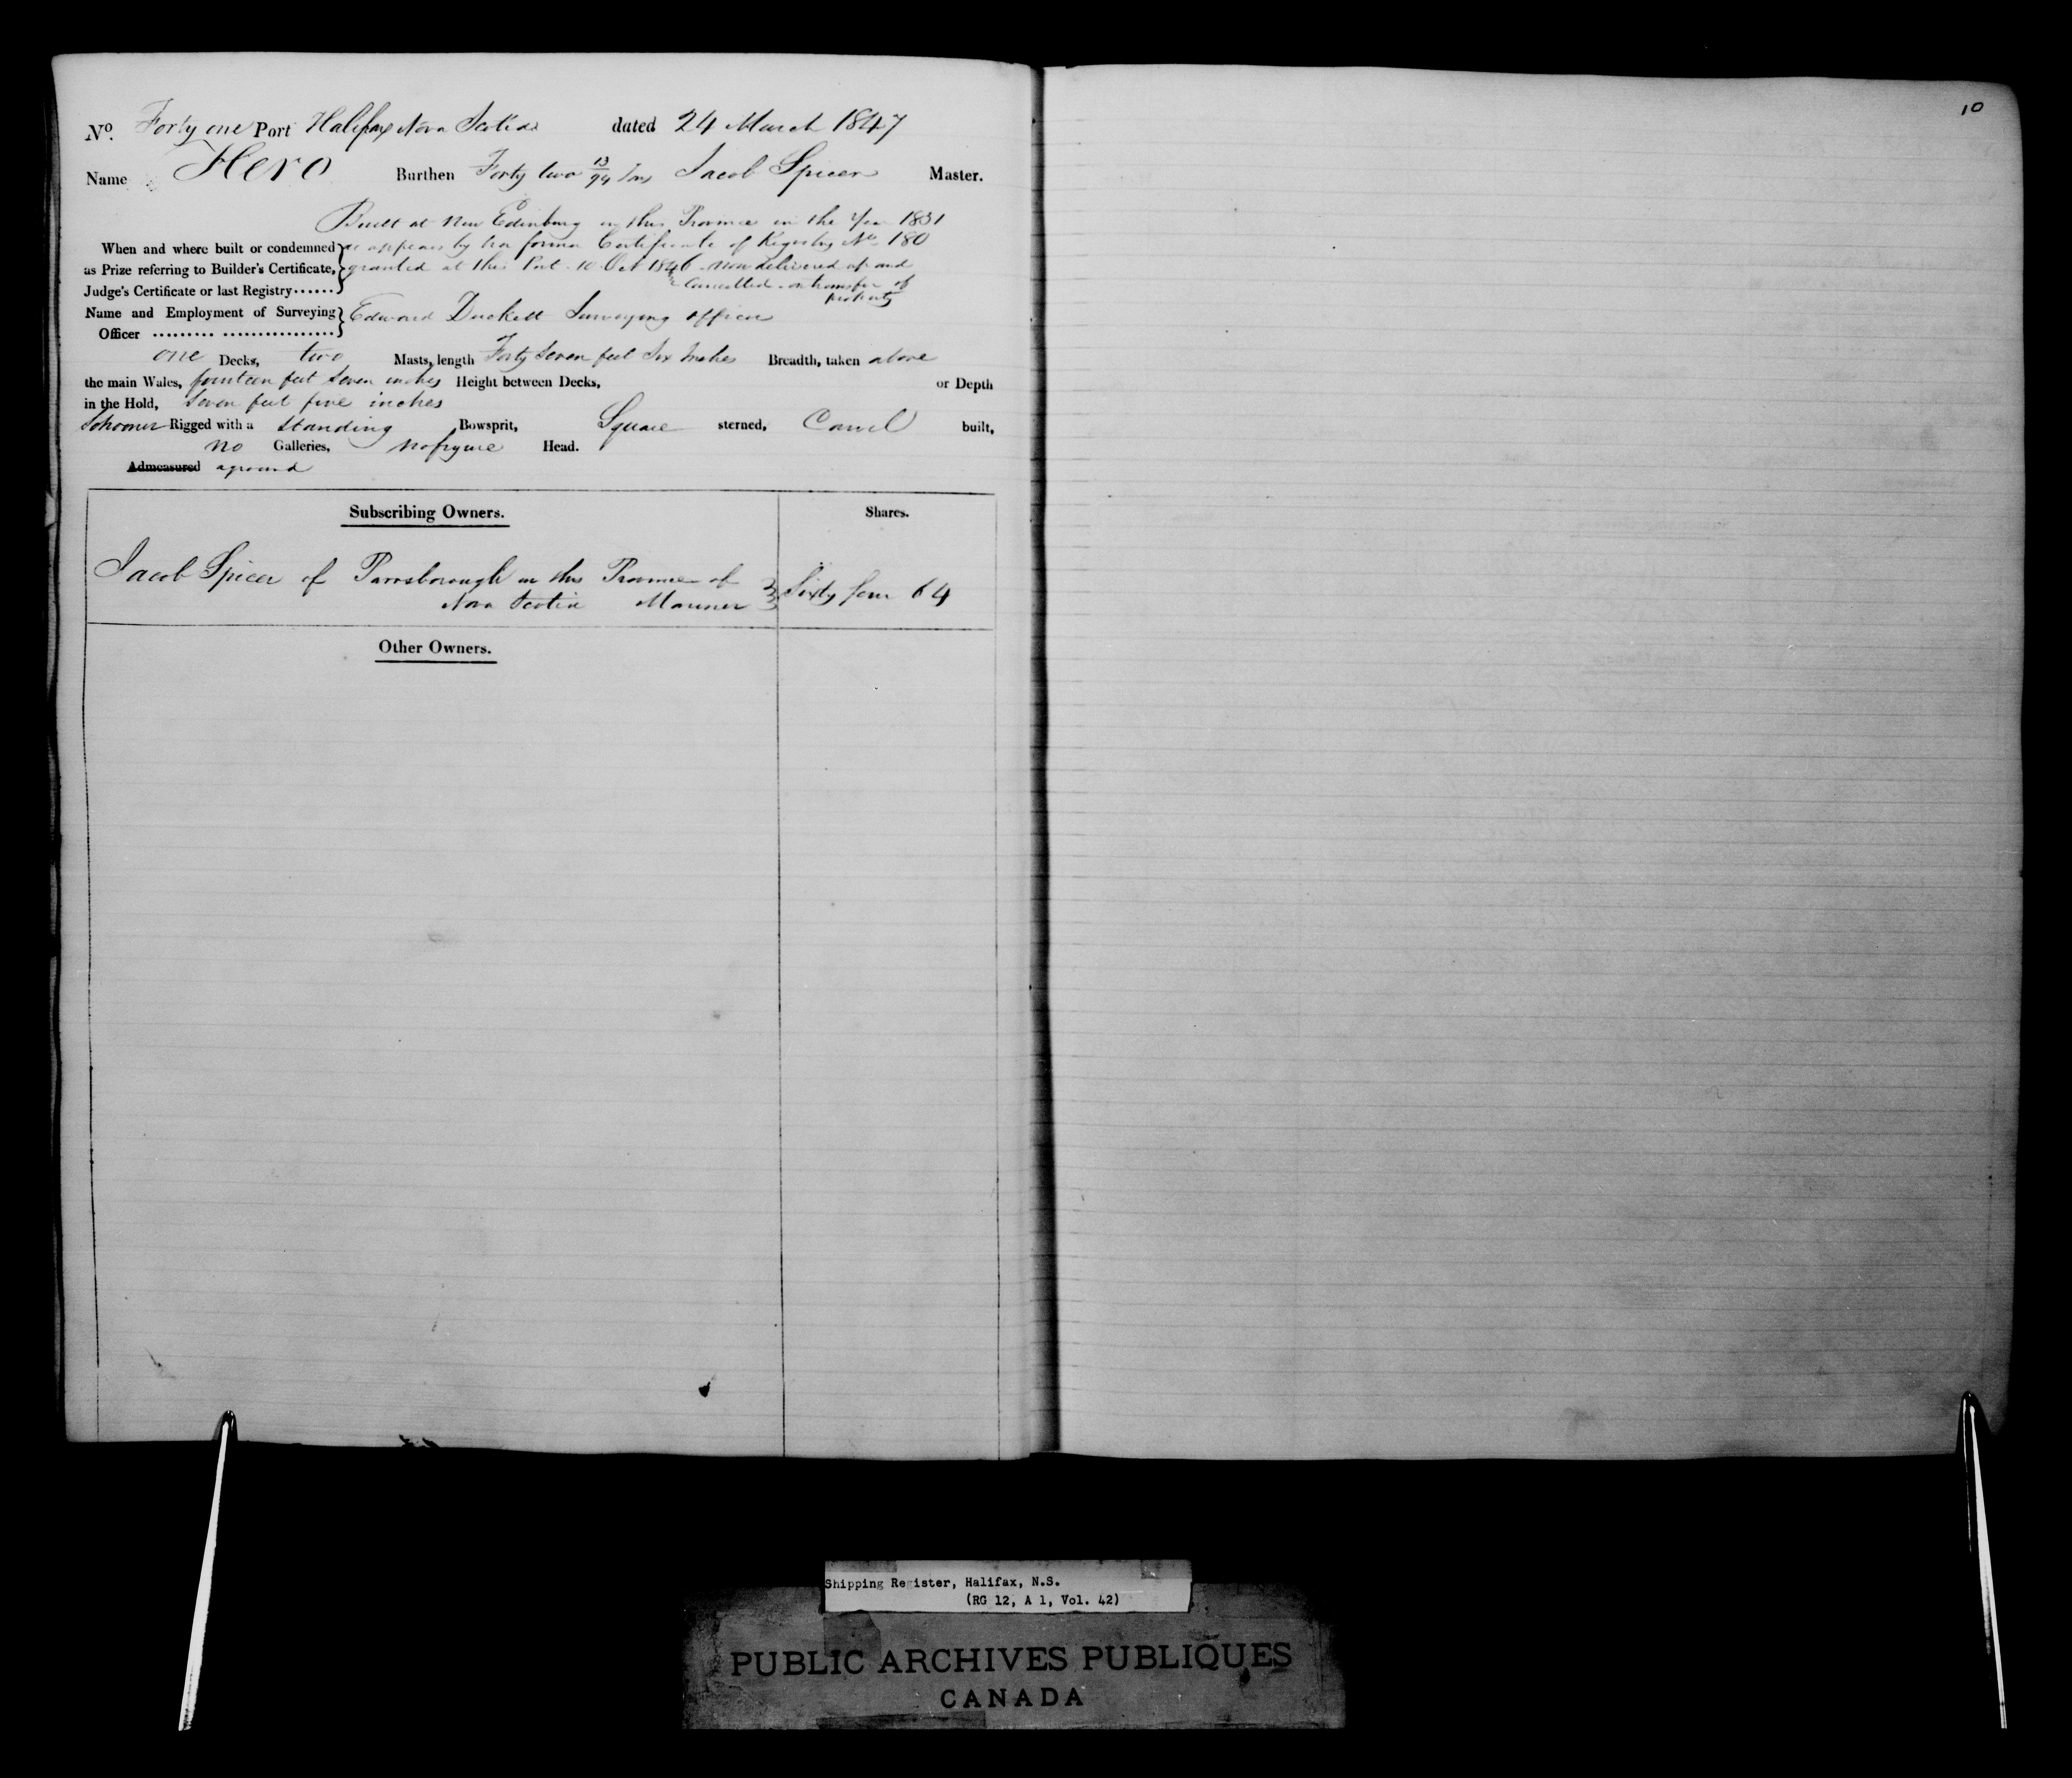 10
No. Forty one Port Halifax Nova Scotia dated 24 March 1847
Name Hero Burthen Forty two 13/94 Tons Jacob Spicer Master.
Built at New Edinburg in this Province in the Year 1831
When and where built or condemned as appears by her former Certificate of Registry No. 180
as Prize referring to Builder's Certificate, granted at this Port 10 Oct 1846 now delivered up and
Judge's Certificate or last Registry...... Cancelled on transfer of
property
Name and Employment of Surveying Edward Duckett Surveying officer
Officer ......... ................
one Decks, two Masts, length Forty Seven feet Six Inches Breadth, taken above
the main Wales, fourteen feet Seven inches Height between Decks, or Depth
in the Hold, Seven feet five inches
Schooner Rigged with a Standing Bowsprit, Square sterned, Carvel built,
no Galleries, no figure Head.
Admeasured aground
Subscribing Owners. Shares.
Jacob Spicer of Parrsborough in this Province of
Nova Scotia Mariner Sixty four 64
Other Owners.
Shipping Register, Halifax, N.S.
(RG 12, A 1, Vol. 42)
PUBLIC ARCHIVES PUBLIQUES
CANADA